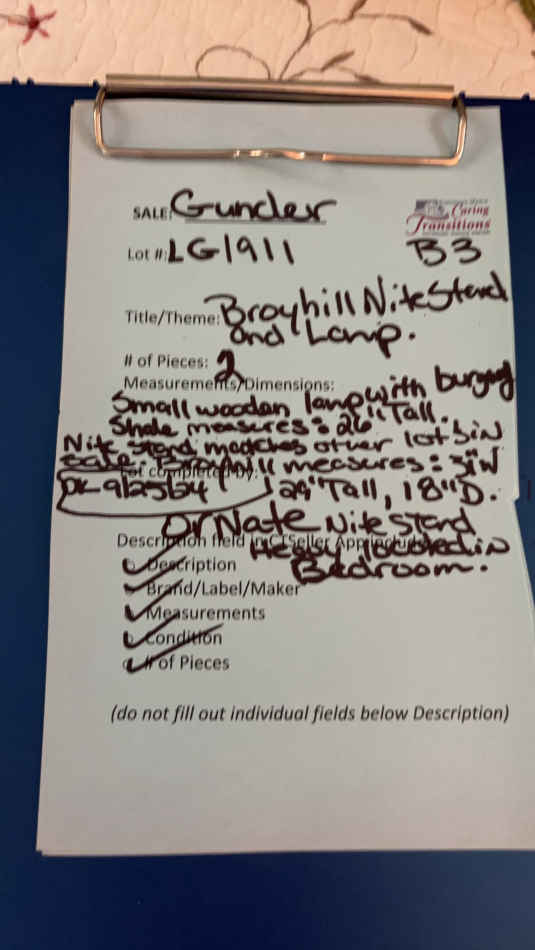 SALE: Gunder
Caring
Transitions
Lot #: LG1911 B3
Title/Theme: Broyhill Nite Stand
and Lamp.
# of Pieces: 2
Measurements/Dimensions:
Small wooden lamp with burgandy
Shade measures: 26" Tall.
Nite stand matches other lots in
Sale. Broyhill measures: 31"W
Lot completed by:
DK 9/25/24 29" Tall, 18"D.
Ornate Nite Stand
Description field in CTSeller App
Heavy located in
Description Bedroom.
Brand/Label/Maker
Measurements
Condition
# of Pieces
(do not fill out individual fields below Description)